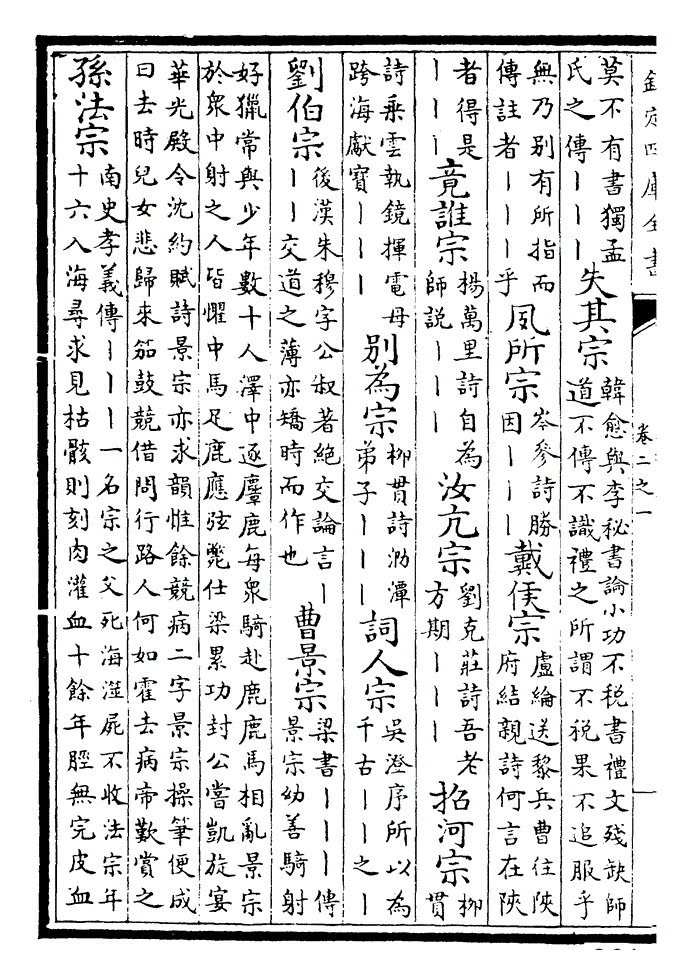 欽定四庫全書 卷二之一
莫不有書獨孟
氏之傳丨丨丨
失其宗
韓愈與李秘書論小功不税書禮文殘缺師
道不傳不識禮之所謂不税果不追服乎
無乃别有所指而
傳註者丨丨丨乎
風所宗
岑參詩勝
因丨丨丨
戴侯宗
盧綸送黎兵曹往陜
府結親詩何言在陜
者得是
丨丨丨
竟誰宗
楊萬里詩自為
師説丨丨丨
汝亢宗
劉克莊詩吾老
方期丨丨丨
招河宗
柳
貫
詩乗雲執鏡揮電母
跨海獻寳丨丨丨
别為宗
柳貫詩泐潭
弟子丨丨丨
詞人宗
吳澄序所以為
千古丨丨之丨
劉伯宗
後漢朱穆字公叔著絶交論言丨
丨丨交道之薄亦矯時而作也
曹景宗
梁書丨丨丨傳
景宗幼善騎射
好獵常與少年數十人澤中逐麞鹿每衆騎赴鹿鹿馬相亂景宗
於衆中射之人皆懼中馬足鹿應弦斃仕梁累功封公嘗凱旋宴
華光殿令沈約賦詩景宗亦求韻惟餘競病二字景宗操筆便成
曰去時兒女悲歸來笳鼓競借問行路人何如霍去病帝歎賞之
孫法宗
南史孝義傳丨丨丨一名宗之父死海湴屍不收法宗年
十六入海尋求見枯骸則刻肉灌血十餘年脛無完皮血